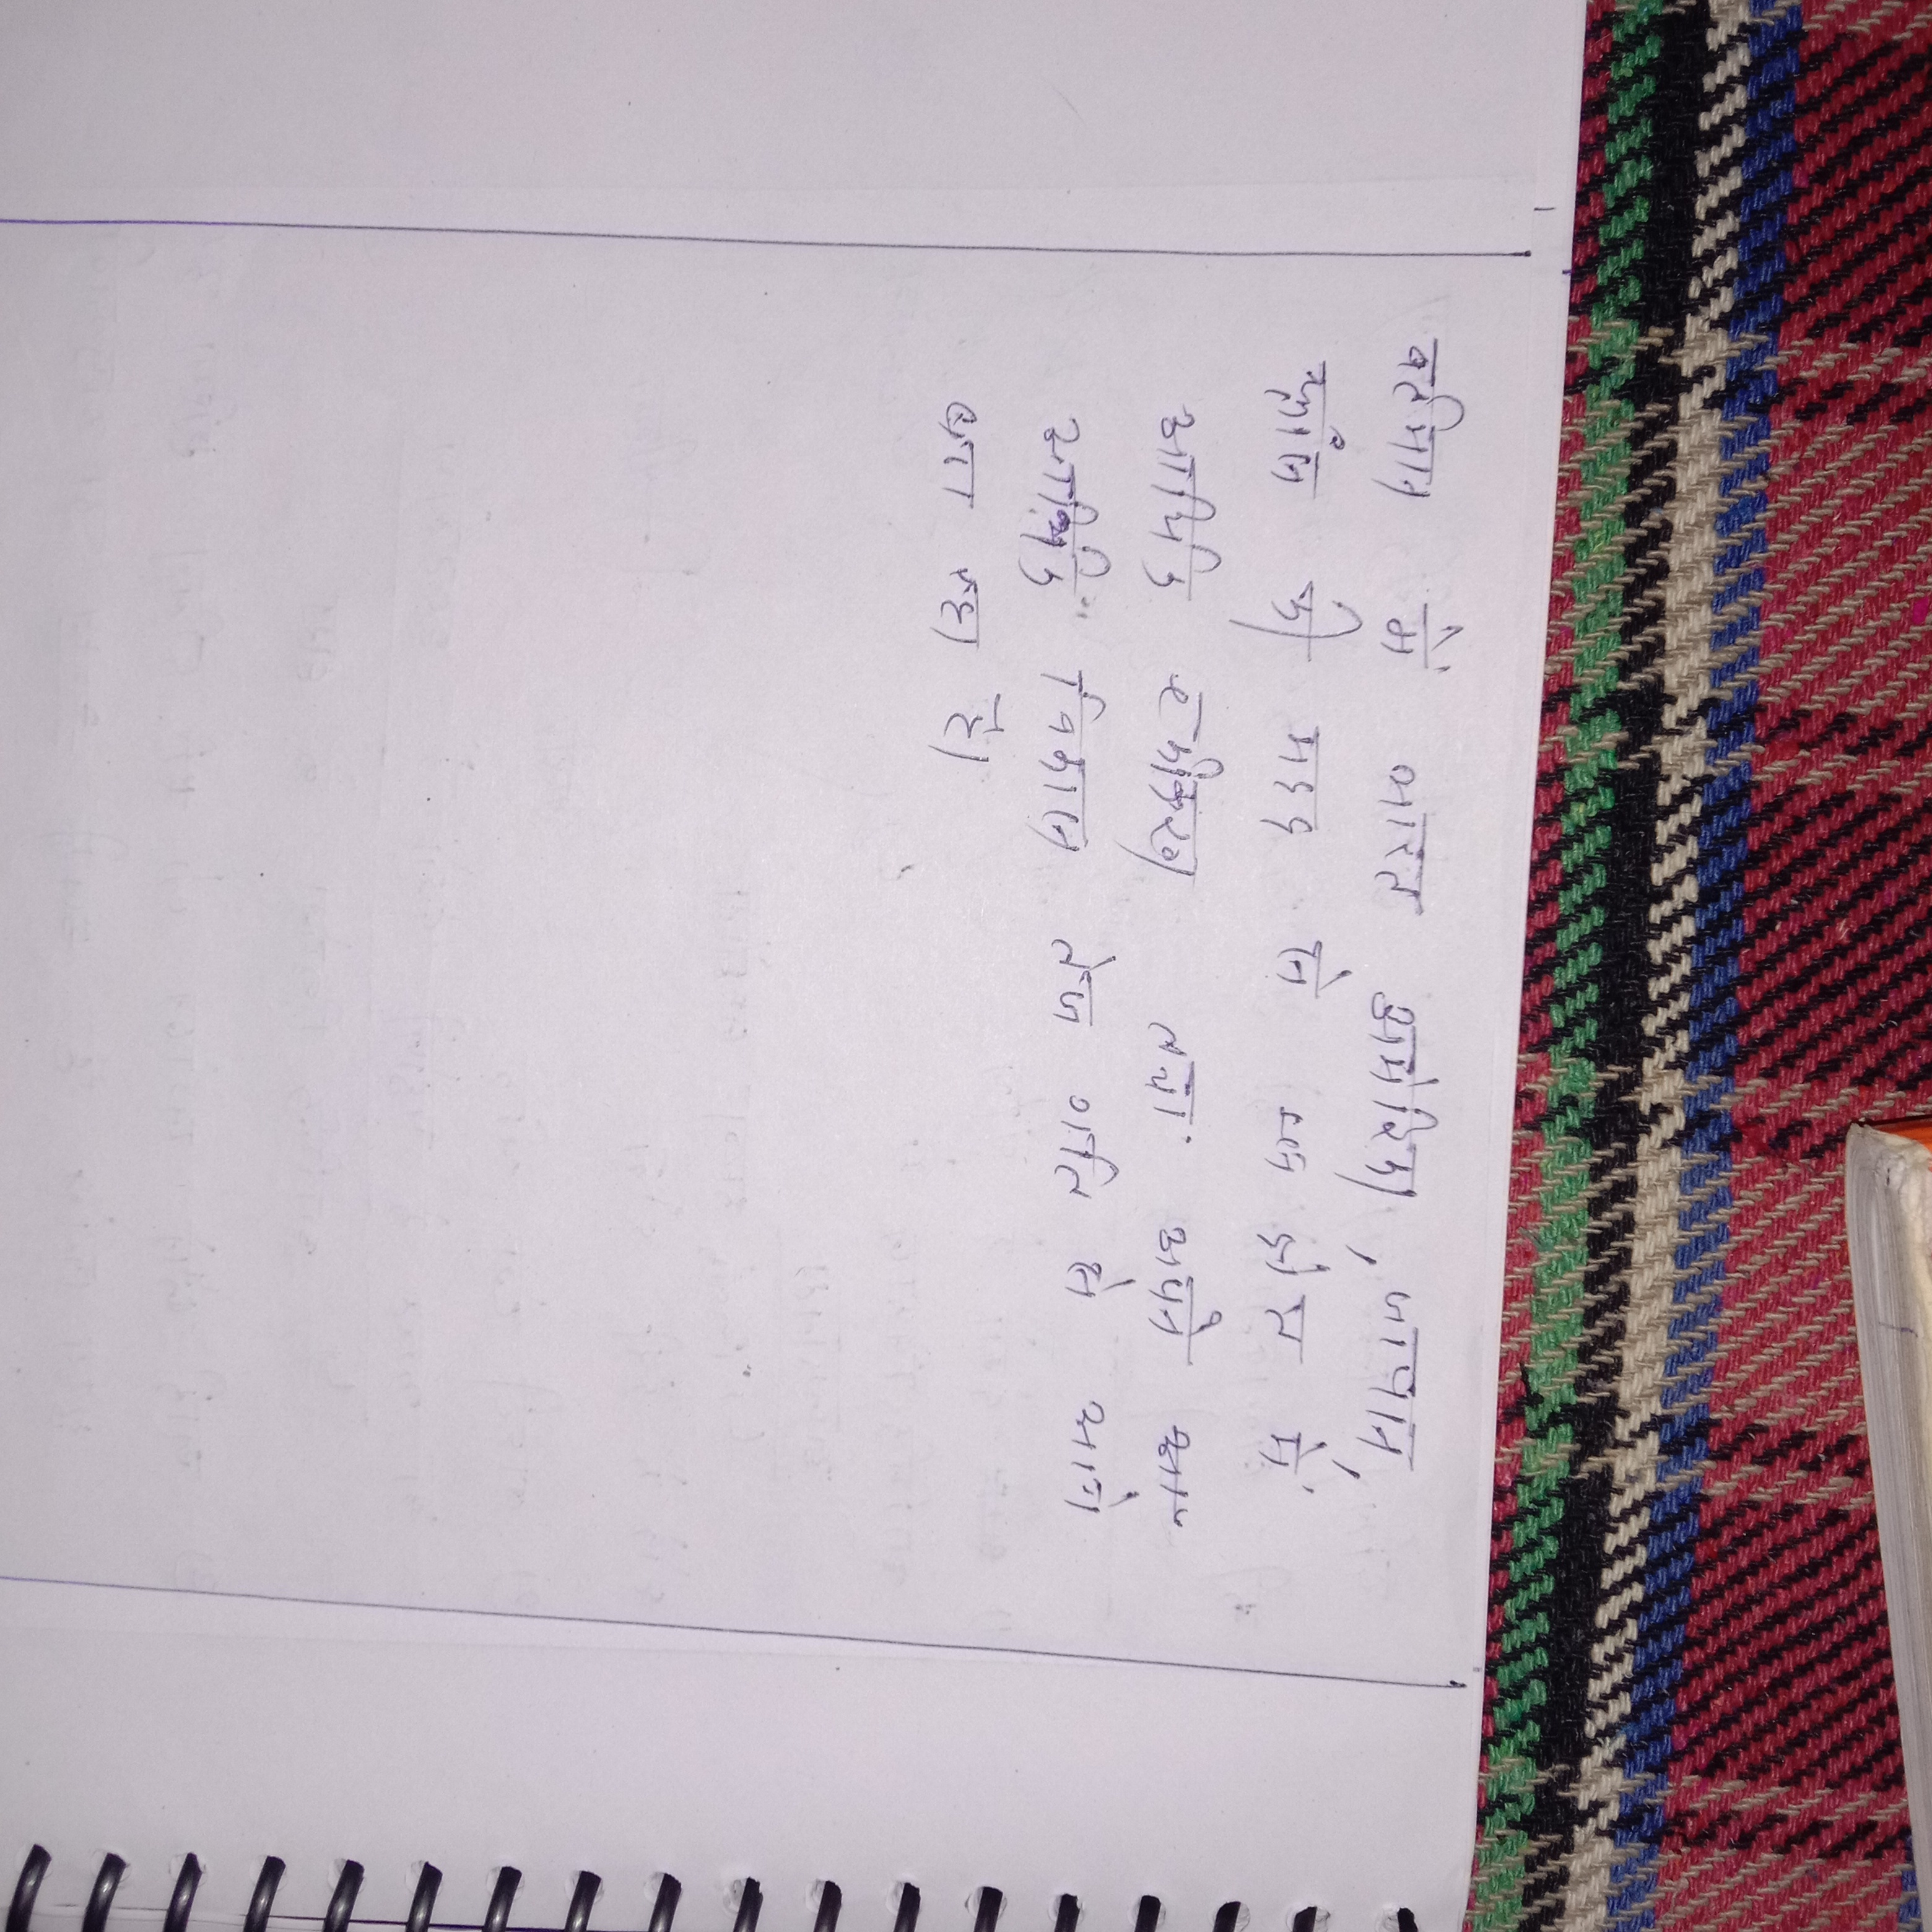 वर्तमान में भारत अमेरिका, जापान,
फ्रांस की मदद से इस क्षेत्र में
आर्थिक एकीकरण तथा अपने
आर्थिक विकास तेज गति से आगे
बढ़ा रहा है।